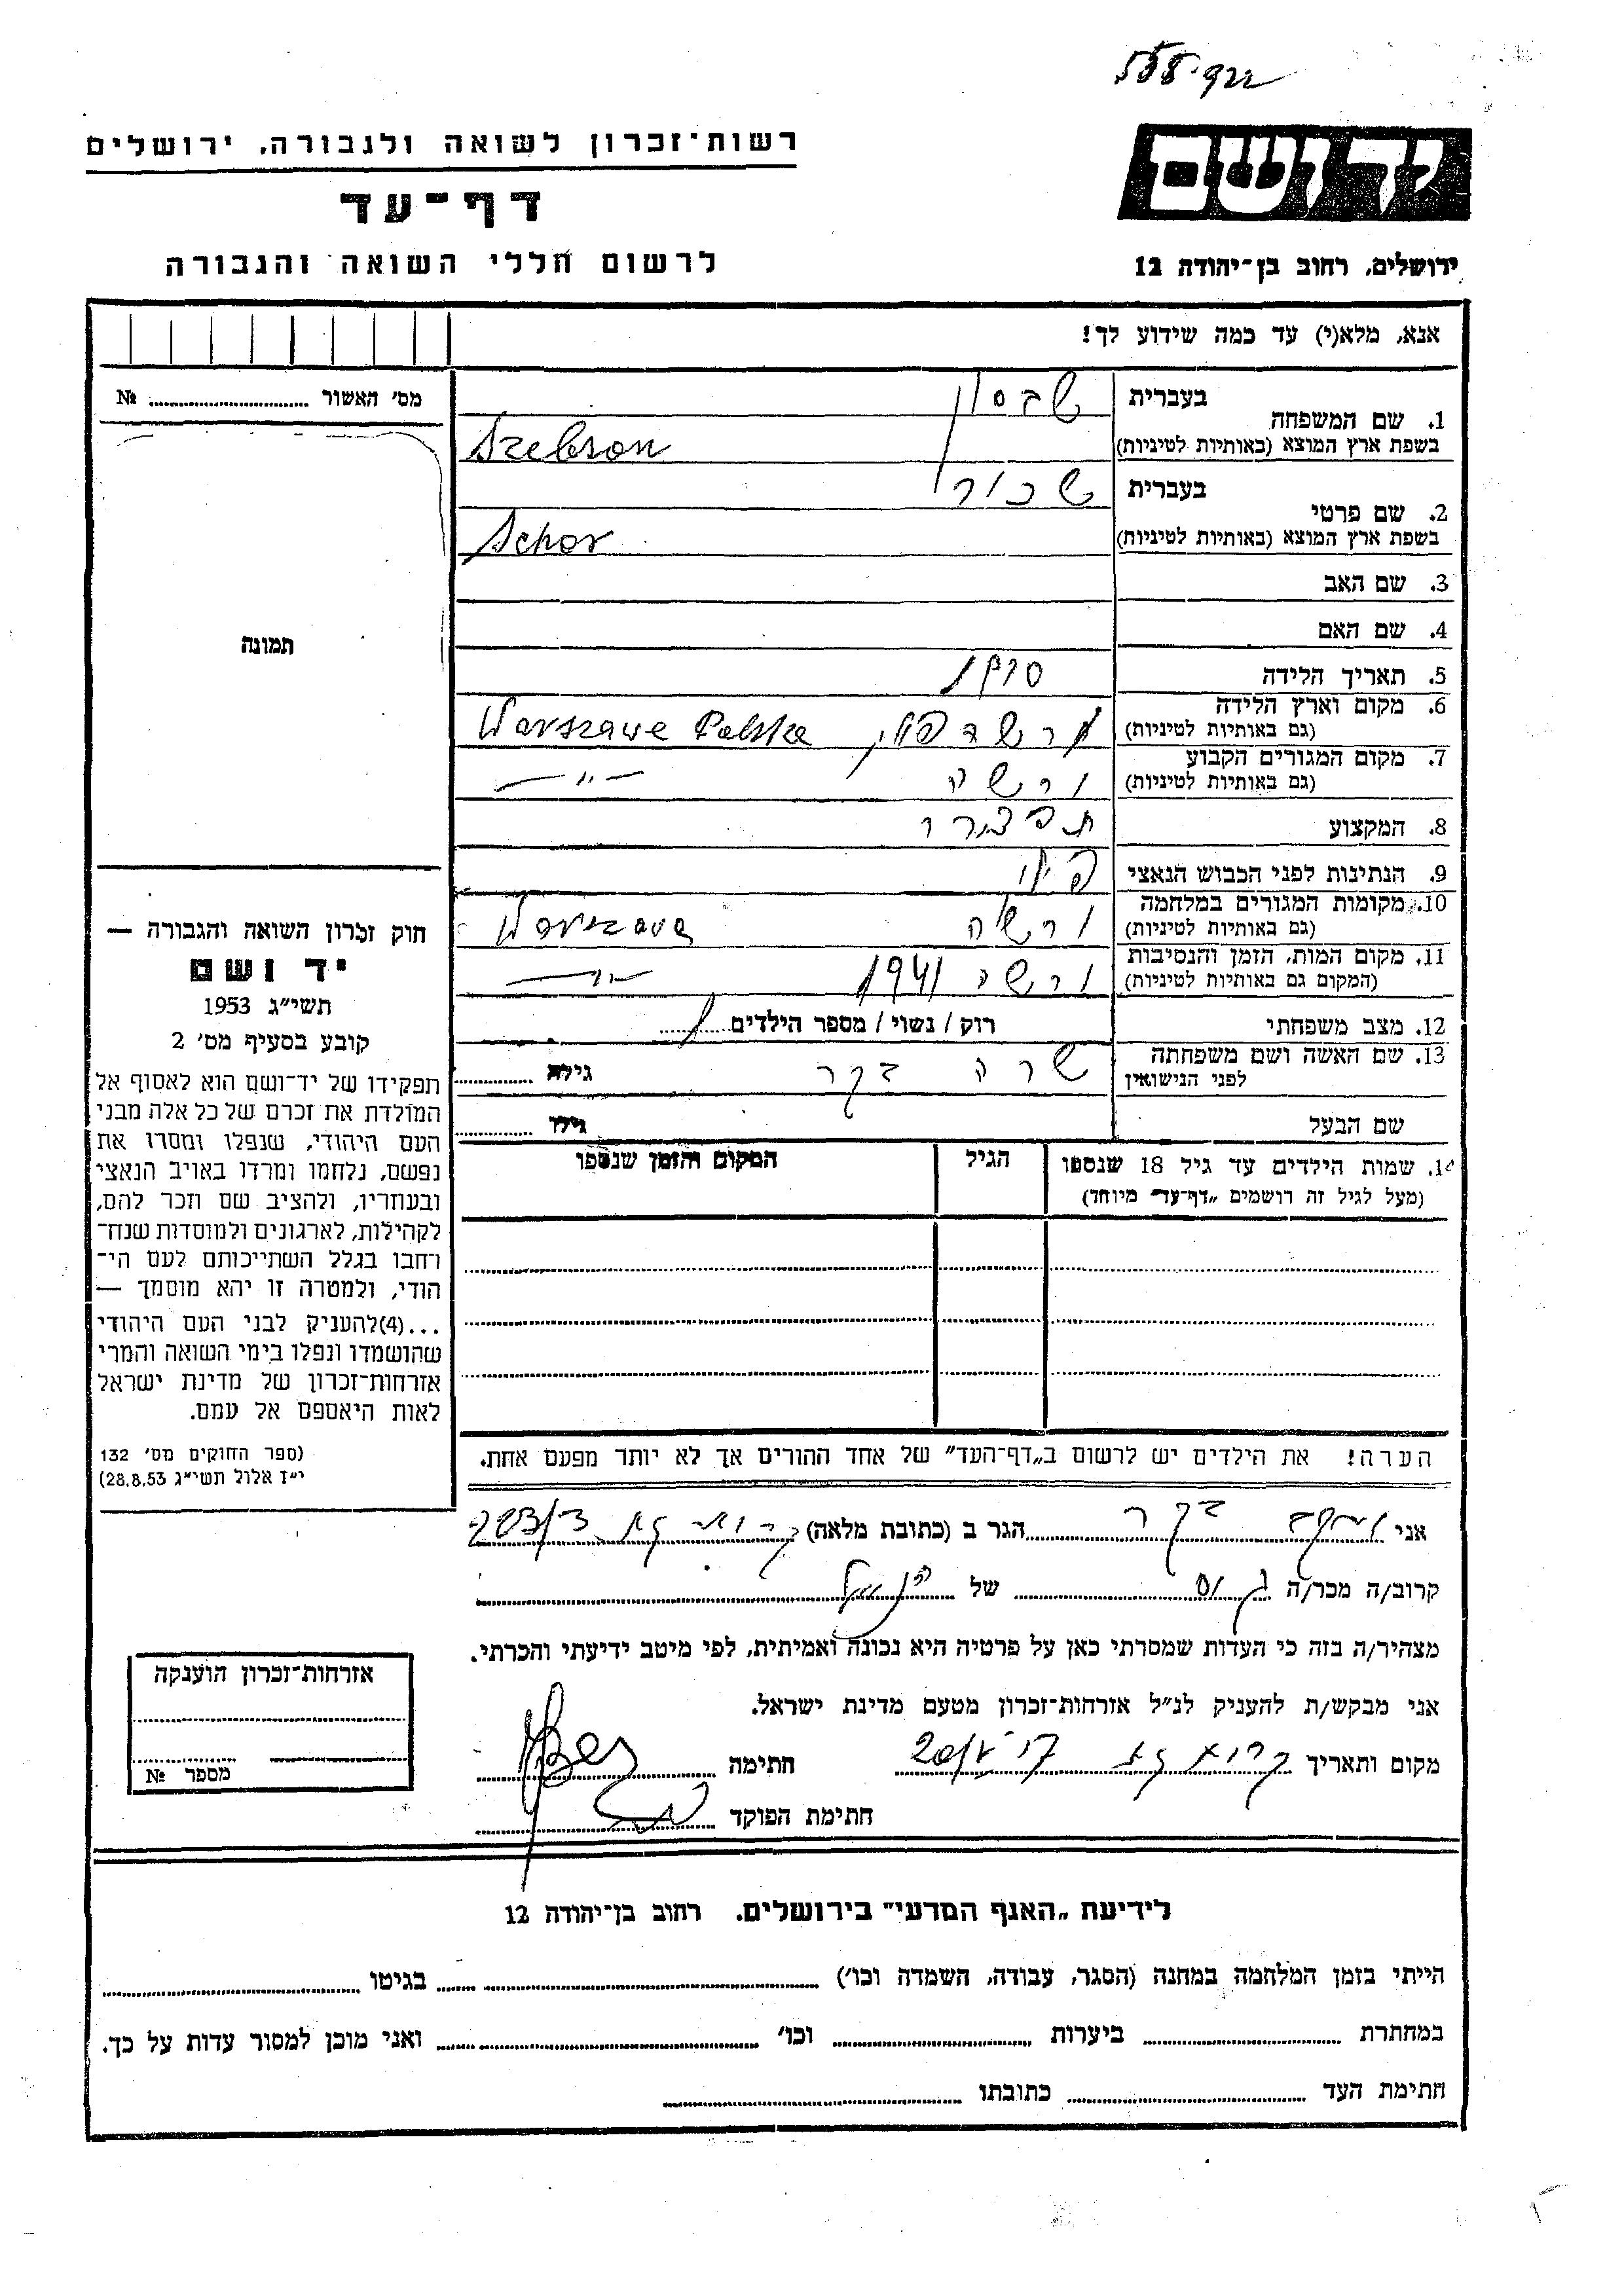 רשות־זכרון לשואה ולגבורה, ירושלים
דף־עד
לרשום חללי השואה והגבורה
יד ושם
ירושלים, רחוב בן־יהודה 12
אנא, מלא(י) עד כמה שידוע לך!
מס' האשור № ....................
תמונה
1. שם המשפחה
בעברית
שבסון
בשפת ארץ המוצא (באותיות לטיניות)
Szebson
2. שם פרטי
בעברית
שכור
בשפת ארץ המוצא (באותיות לטיניות)
Schor
3. שם האב
4. שם האם
5. תאריך הלידה
6. מקום וארץ הלידה
(גם באותיות לטיניות)
ורשה פולין Warszawa Polska
7. מקום המגורים הקבוע
(גם באותיות לטיניות)
ורשה —״—
8. המקצוע
9. הנתינות לפני הכבוש הנאצי
10. מקומות המגורים במלחמה
(גם באותיות לטיניות)
ורשה Warszawa
11. מקום המות, הזמן והנסיבות
(המקום גם באותיות לטיניות)
ורשה 1941 —״—
12. מצב משפחתי
רוק / נשוי / מספר הילדים 1
13. שם האשה ושם משפחתה
לפני הנישואין
שרה בקר גילה
שם הבעל גילו
14. שמות הילדים עד גיל 18 שנספו
(מעל לגיל זה רושמים „דף־עד״ מיוחד)
הגיל
המקום והזמן שנספו
הערה! את הילדים יש לרשום ב„דף־העד״ של אחד ההורים אך לא יותר מפעם אחת.
חוק זכרון השואה והגבורה —
יד ושם
תשי״ג 1953
קובע בסעיף מס' 2
תפקידו של יד־ושם הוא לאסוף אל
המולדת את זכרם של כל אלה מבני
העם היהודי, שנפלו ומסרו את
נפשם, נלחמו ומרדו באויב הנאצי
ובעוזריו, ולהציב שם וזכר להם,
לקהילות, לארגונים ולמוסדות שנח־
רחבו בגלל השתייכותם לעם הי־
הודי, ולמטרה זו יהא מוסמך —
...(4)להעניק לבני העם היהודי
שהושמדו ונפלו בימי השואה והמרי
אזרחות־זכרון של מדינת ישראל
לאות היאספם אל עמם.
(ספר החוקים מס' 132
י״ז אלול תשי״ג 28.8.53)
אני יעקב בקר הגר ב (כתובת מלאה) קרית גת
קרוב/ה מכר/ה גיס של הנ״ל
מצהיר/ה בזה כי העדות שמסרתי כאן על פרטיה היא נכונה ואמיתית, לפי מיטב ידיעתי והכרתי.
אני מבקש/ת להעניק לנ״ל אזרחות־זכרון מטעם מדינת ישראל.
מקום ותאריך קרית גת חתימה
חתימת הפוקד
אזרחות־זכרון הוענקה
מספר №
לידיעת „האגף המדעי״ בירושלים. רחוב בן־יהודה 12
הייתי בזמן המלחמה במחנה (הסגר, עבודה, השמדה וכו') בגיטו
במחתרת ביערות וכו' ואני מוכן למסור עדות על כך.
חתימת העד כתובתו